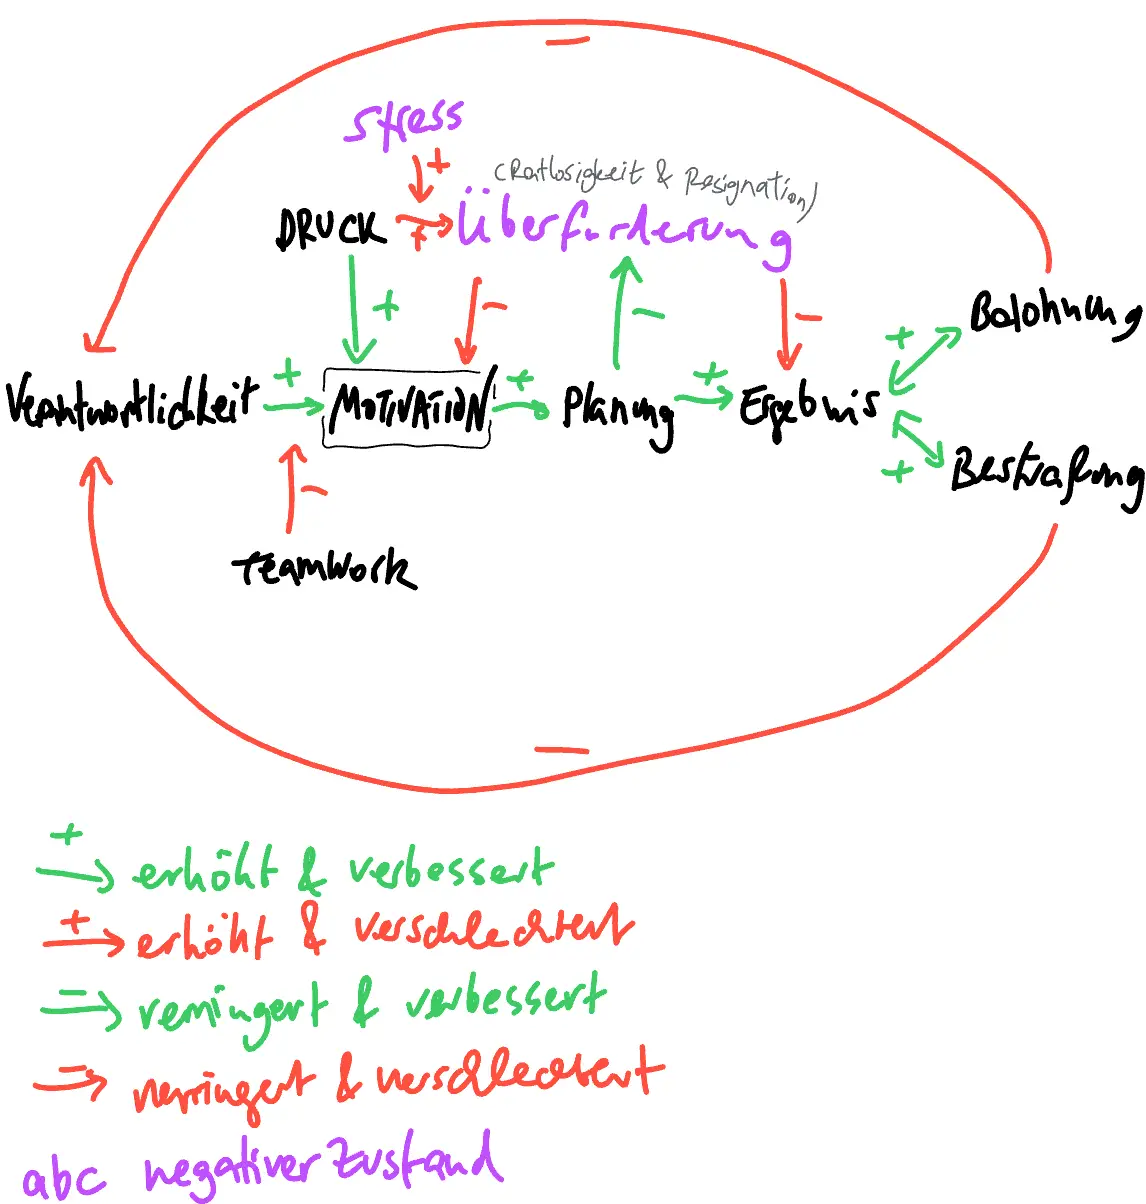 −
Stress
+
(Ratlosigkeit & Resignation)
DRUCK + Überforderung
+ − − −
Belohnung
+
Verantwortlichkeit + MOTIVATION + Planung + Ergebnis
+
Bestrafung
−
Teamwork
−
+ erhöht & verbessert
+ erhöht & verschlechtert
− verringert & verbessert
− verringert & verschlechtert
abc negativer Zustand